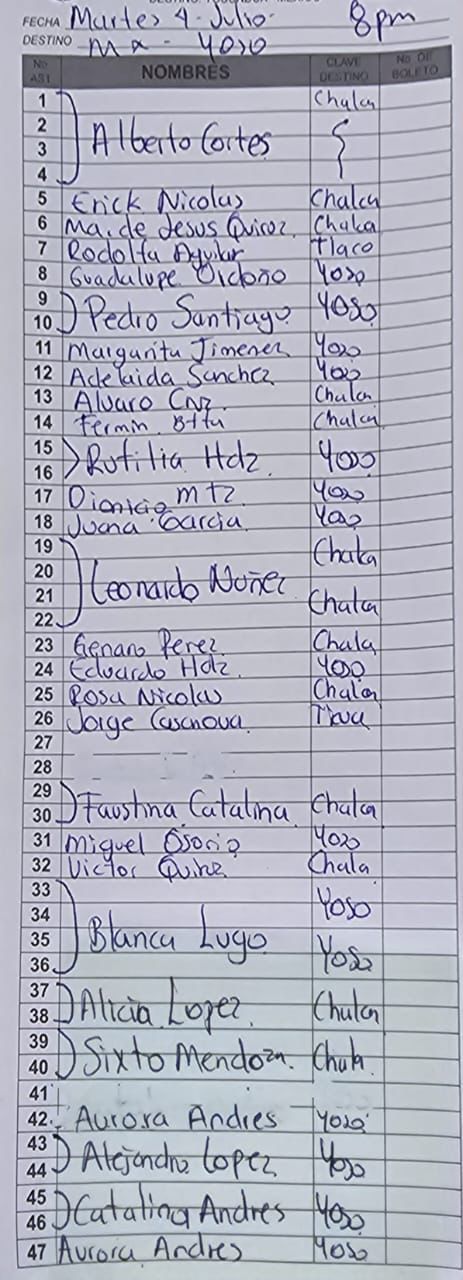 FECHA Martes 4-Julio- 8pm
DESTINO Mx - Yoso
No. AST. NOMBRES CLAVE DESTINO No. DE BOLETO
1 Chalca
2
3 Alberto Cortes
4
5 Erick Nicolas Chalca
6 Ma. de Jesus Quiroz. Chalca
7 Rodolfo Aguilar Tlaco
8 Guadalupe Yoso
9
10 Pedro Santiago Yoso
11 Margarita Jimenez Yoso
12 Adelaida Sanchez Yoso
13 Alvaro Cruz. Chalca
14 Fermin Btta Chalca
15
16 Rutilia Hdz. Yoso
17 Dionicio mtz Yoso
18 Juana Garcia Yoso
19 Chalca
20
21 Leonardo Nuñez Chalca
22
23 Genaro Perez. Chalca
24 Eduardo Hdz. Yoso
25 Rosa Nicolas Chalca
26 Jorge Casanova
27
28
29
30 Faustina Catalina Chalca
31 Miguel Osorio Yoso
32 Victor Chalca
33 Yoso
34
35 Blanca Lugo Yoso
36
37
38 Alicia Lopez Chalca
39
40 Sixto Mendoza. Chalca
41
42 Aurora Andres Yoso
43
44 Alejandra Lopez Yoso
45
46 Catalina Andres Yoso
47 Aurora Andres Yoso